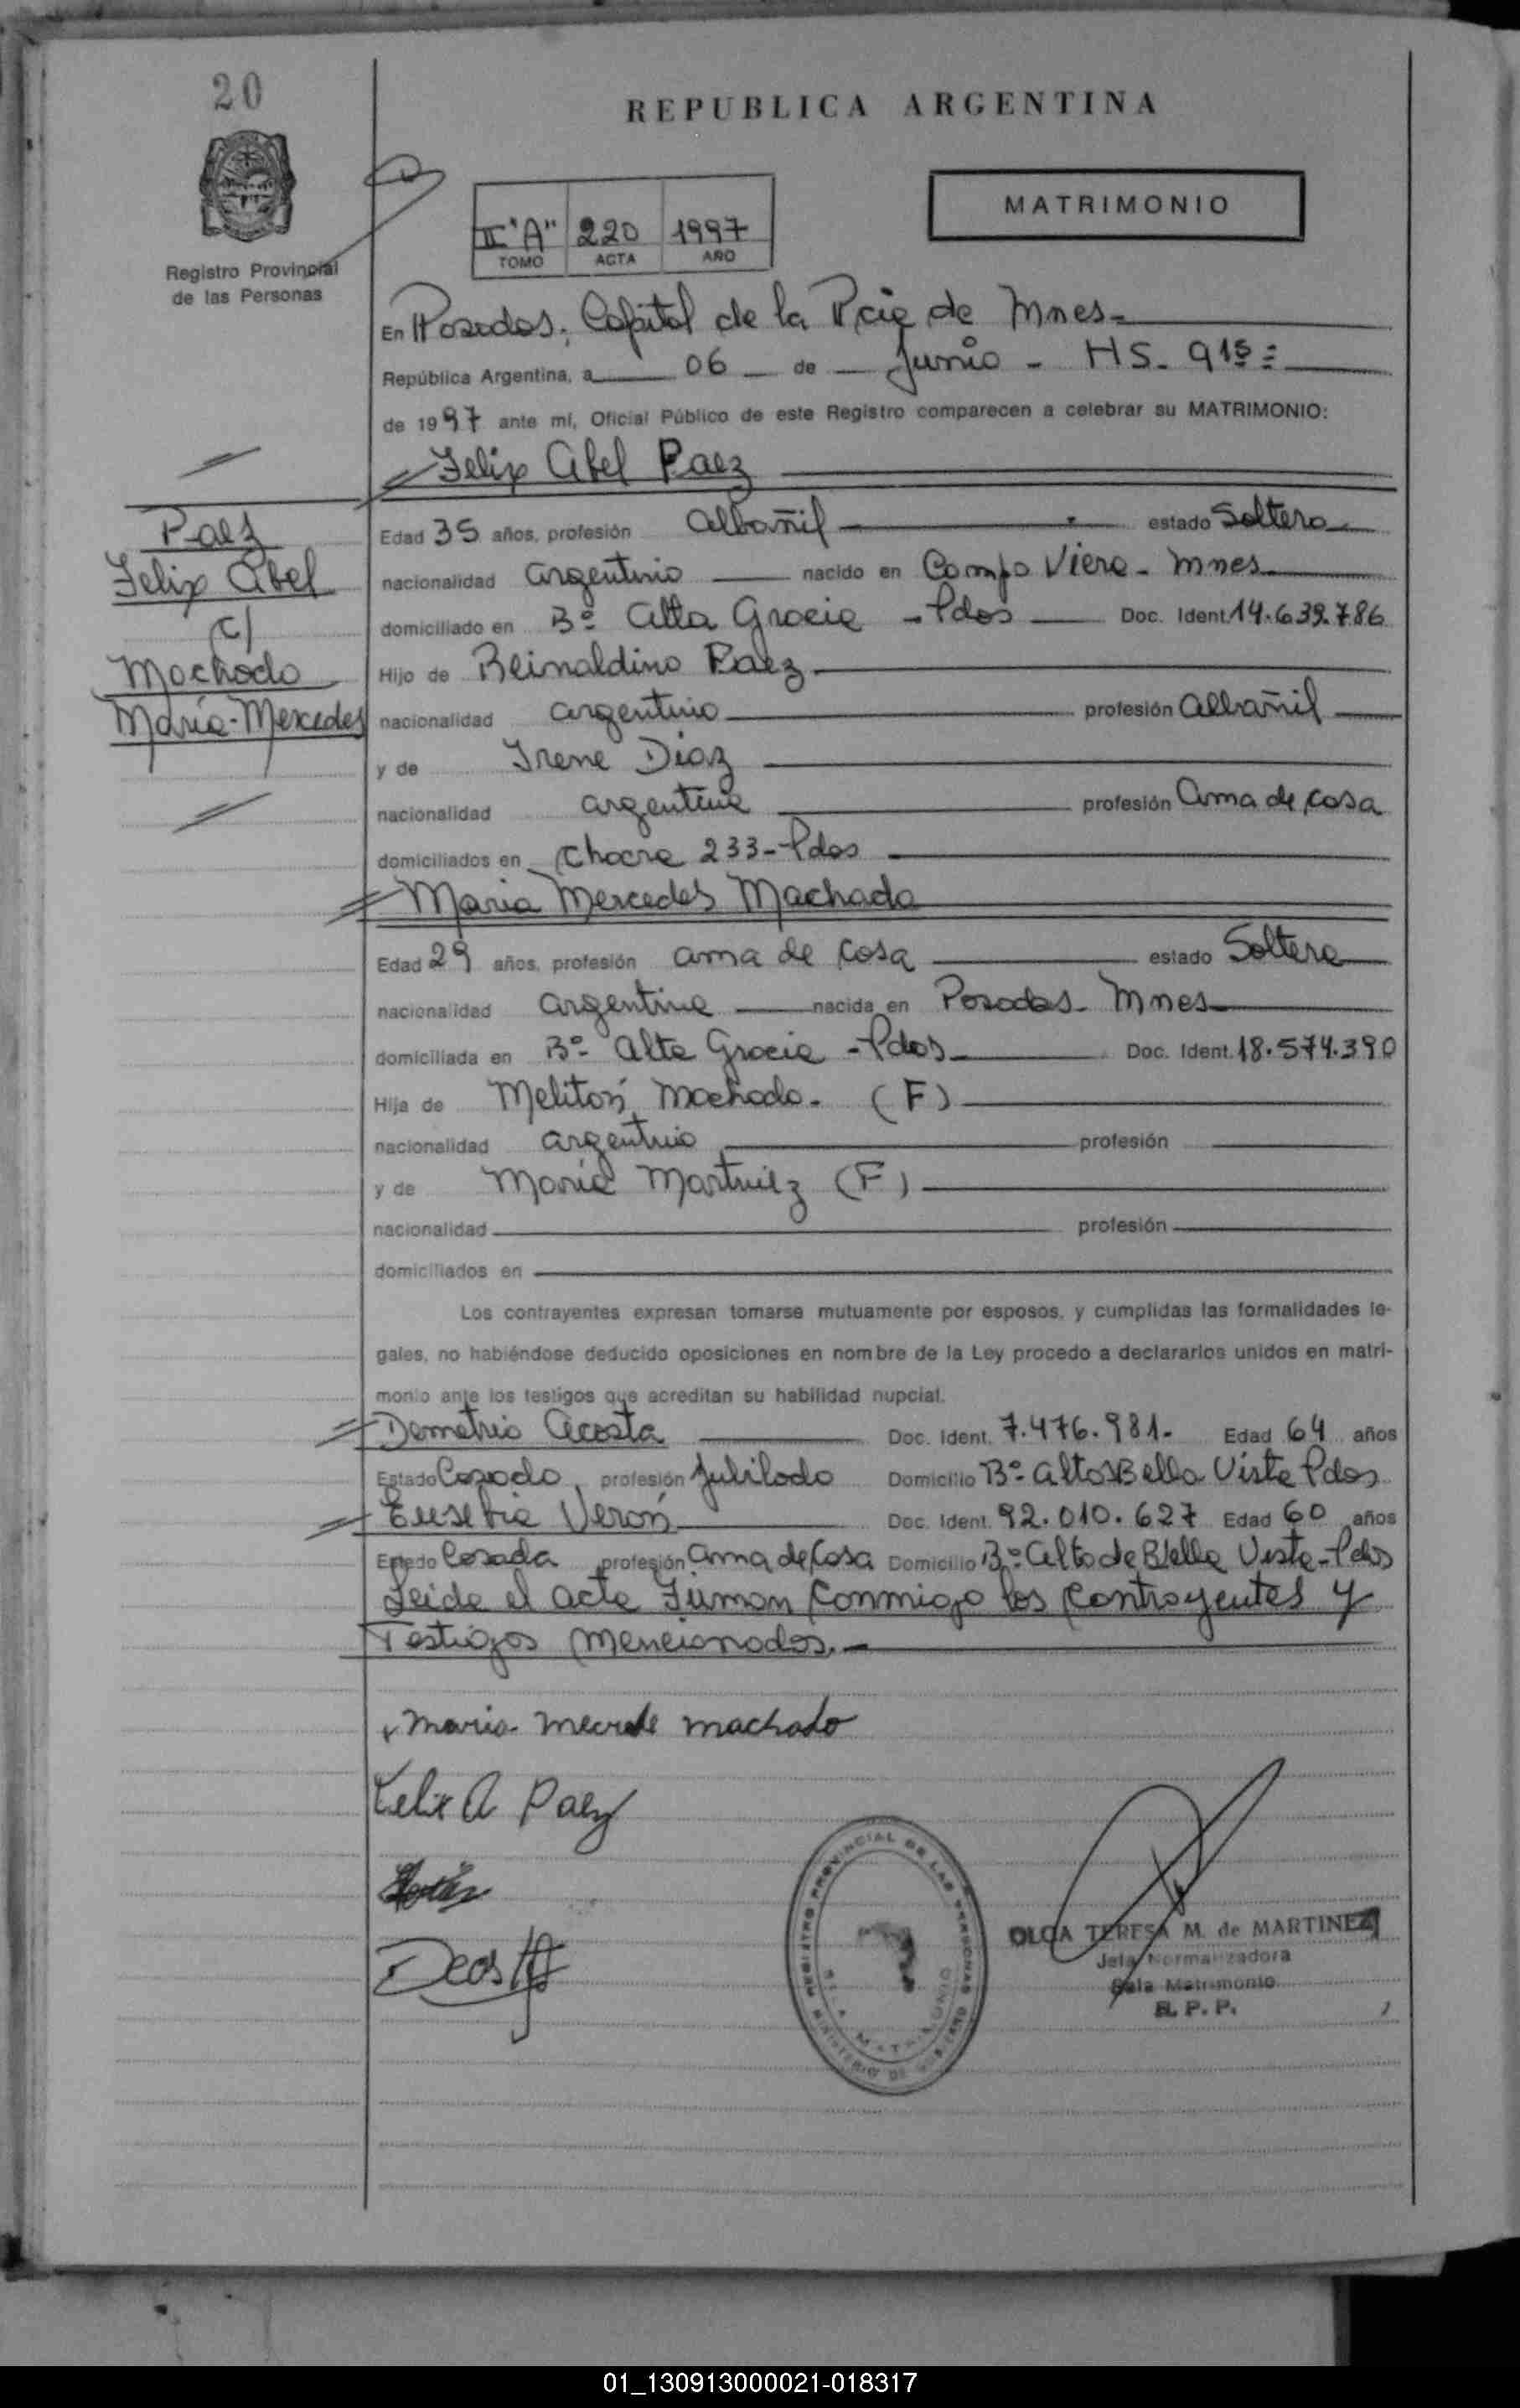 20
REPUBLICA ARGENTINA
MATRIMONIO
II "A" 220 1997
TOMO ACTA AÑO
Registro Provincial
de las Personas
En Posadas, Capital de la Pcia de Mnes-
República Argentina, a 06 de Junio - HS- 915=
de 1997 ante mí, Oficial Público de este Registro comparecen a celebrar su MATRIMONIO:
Felix Abel Paez
Paez
Felix Abel
c/
Machado
María-Mercedes
Edad 35 años, profesión Albañil estado Soltero
nacionalidad argentino nacido en Campo Viera - Mnes
domiciliado en Bº Alta Gracia - Pdas Doc. Ident. 14.639.786
Hijo de Reinaldino Paez
nacionalidad argentino profesión albañil
y de Irene Diaz
nacionalidad argentina profesión ama de casa
domiciliados en Chacra 233-Pdas
Maria Mercedes Machado
Edad 29 años, profesión ama de casa estado Soltera
nacionalidad argentina nacida en Posadas - Mnes
domiciliada en Bº Alta Gracia - Pdas Doc. Ident. 18.574.390
Hija de Melitón Machado. (F)
nacionalidad argentino profesión
y de María Martinez (F)
nacionalidad profesión
domiciliados en
Los contrayentes expresan tomarse mutuamente por esposos, y cumplidas las formalidades le-
gales, no habiéndose deducido oposiciones en nombre de la Ley procedo a declararlos unidos en matri-
monio ante los testigos que acreditan su habilidad nupcial.
Demetrio Acosta Doc. Ident. 7.476.981- Edad 64 años
Estado Casado, profesión Jubilado Domicilio Bº Altos Bella Vista Pdas
Eusebia Verón Doc. Ident. 92.010.627 Edad 60 años
Estado Casada profesión ama de Casa Domicilio Bº Alto de Bella Vista-Pdas
Leida el acta Firman conmigo los contrayentes y
Testigos mencionados.-
maria mecrede machado
Felix A Paez
D Acosta
REGISTRO PROVINCIAL DE LAS PERSONAS
MINISTERIO DE GOBIERNO
SALA MATRIMONIO
OLGA TERESA M. de MARTINEZ
Jefa Normalizadora
Sala Matrimonio
R. P. P.
01_130913000021-018317